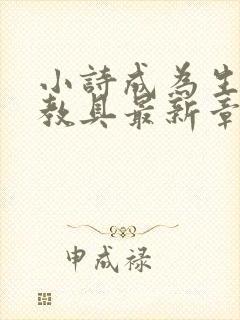 小詩成為生
教具最新章
申成禄